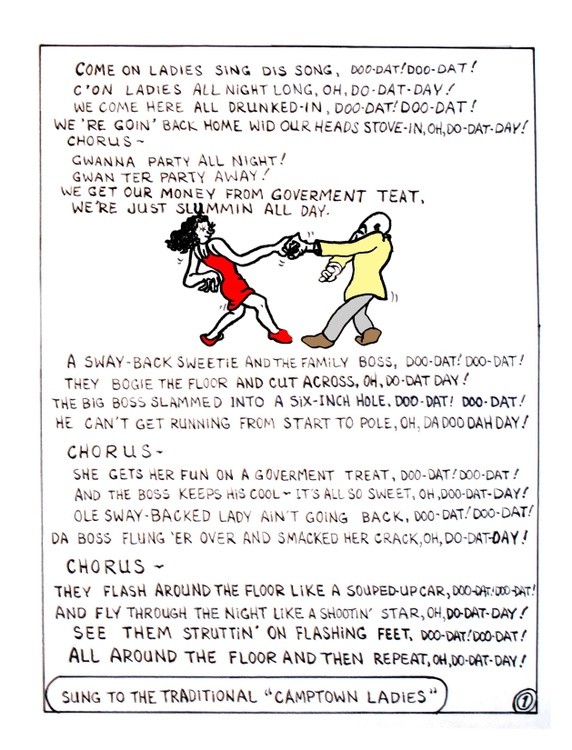 COME ON LADIES SING DIS SONG, DOO-DAT! DOO-DAT!
C'ON LADIES ALL NIGHT LONG, OH, DO-DAT-DAY!
WE COME HERE ALL DRUNKED-IN, DOO-DAT! DOO-DAT!
WE'RE GOIN' BACK HOME WID OUR HEADS STOVE-IN, OH, DO-DAT-DAY!
CHORUS~
GWANNA PARTY ALL NIGHT!
GWAN TER PARTY AWAY!
WE GET OUR MONEY FROM GOVERMENT TEAT,
WE'RE JUST SLUMMIN ALL DAY.
A SWAY-BACK SWEETIE AND THE FAMILY BOSS, DOO-DAT! DOO-DAT!
THEY BOGIE THE FLOOR AND CUT ACROSS, OH, DO-DAT DAY!
THE BIG BOSS SLAMMED INTO A SIX-INCH HOLE. DOO-DAT! DOO-DAT!
HE CAN'T GET RUNNING FROM START TO POLE, OH, DA DOO DAH DAY!
CHORUS~
SHE GETS HER FUN ON A GOVERMENT TREAT, DOO-DAT! DOO-DAT!
AND THE BOSS KEEPS HIS COOL~ IT'S ALL SO SWEET, OH, DOO-DAT-DAY!
OLE SWAY-BACKED LADY AIN'T GOING BACK, DOO-DAT! DOO-DAT!
DA BOSS FLUNG 'ER OVER AND SMACKED HER CRACK, OH, DO-DAT-DAY!
CHORUS~
THEY FLASH AROUND THE FLOOR LIKE A SOUPED-UP CAR, DOO-DAT! DOO-DAT!
AND FLY THROUGH THE NIGHT LIKE A SHOOTIN' STAR, OH, DO-DAT-DAY!
SEE THEM STRUTTIN' ON FLASHING FEET, DOO-DAT! DOO-DAT!
ALL AROUND THE FLOOR AND THEN REPEAT, OH, DO-DAT-DAY!
SUNG TO THE TRADITIONAL "CAMPTOWN LADIES"
1